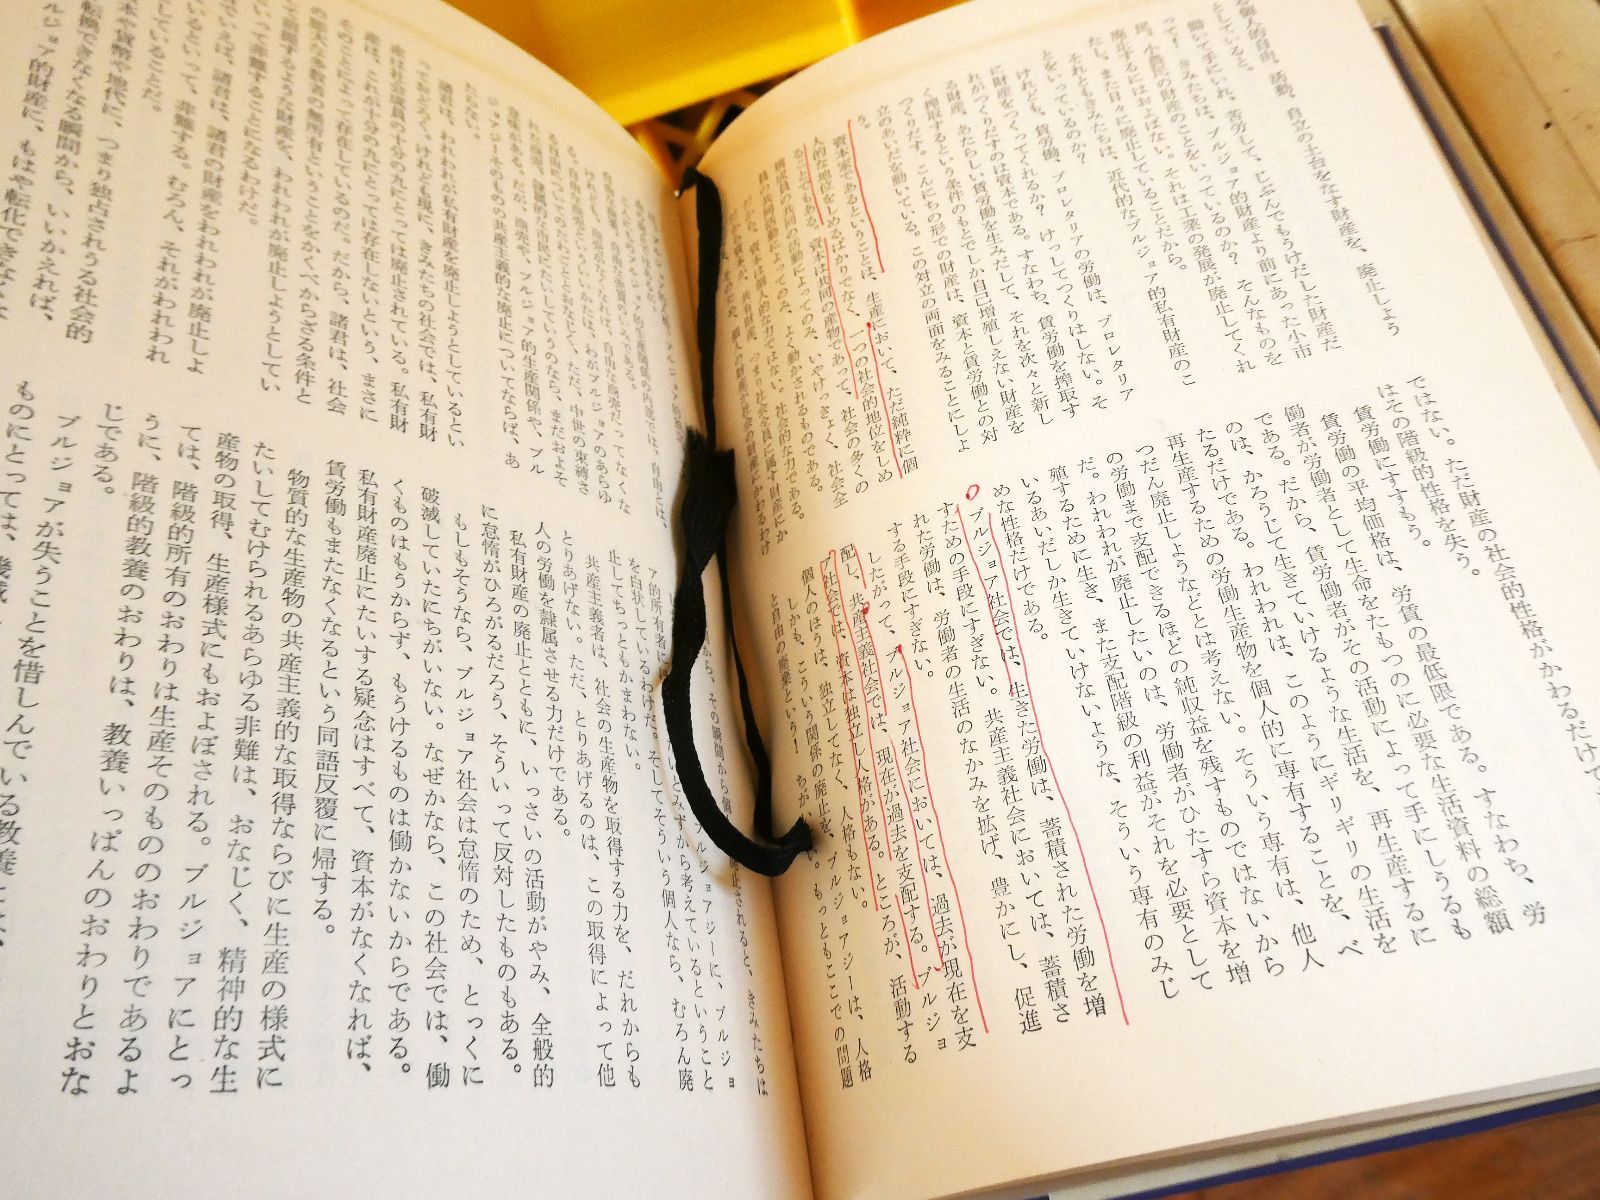 る個人的自由、活動、自立の土台をなす財産を、廃止しよう
としていると。
働いて手にいれ、苦労して、じぶんでもうけだした財産だ
って！ きみたちは、ブルジョア的財産より前にあった小市
民、小農民の財産のことをいっているのか？ そんなものを
廃止するにはおよばない。それは工業の発展が廃止してくれ
たし、また日々に廃止していることだから。
それともきみたちは、近代的なブルジョア的私有財産のこ
とをいっているのか？
けれども、賃労働、プロレタリアの労働は、プロレタリア
に財産をつくってくれるか？ けっしてつくりはしない。そ
れがつくりだすのは資本である。すなわち、賃労働を搾取す
る財産、あたらしい賃労働を生みだして、それを次々と新し
く搾取するという条件のもとでしか自己増殖しえない財産を
つくりだす。こんにちの形での財産は、資本と賃労働との対
立のあいだを動いている。この対立の両面をみることにしよ
う。
資本家であるということは、生産において、ただ純粋に個
人的な地位をしめるばかりでなく、一つの社会的地位をしめ
ることでもある。資本は共同の産物であって、社会の多くの
構成員の共同の活動によってのみ、いやけっきょく、社会全
員の共同活動によってのみ、よく動かされるものである。
だから、資本は個人的な力ではない。社会的な力である。
だから資本が、共有財産、つまり社会全員に属す財産にか
個人の財産が社会の財産にかわるわけ
ではない。ただ財産の社会的性格がかわるだけで
はその階級的性格を失う。
賃労働にすすもう。
賃労働の平均価格は、労賃の最低限である。すなわち、労
働者が労働者として生命をたもつのに必要な生活資料の総額
である。だから、賃労働者がその活動によって手にしうるも
のは、かろうじて生きていけるようなギリギリの生活を、再生産するに
たるだけである。われわれは、このように
再生産するための労働生産物を個人的に専有することを、べ
つだん廃止しようなどとは考えない。そういう専有は、他人
の労働まで支配できるほどの純収益を残すものではないから
だ。われわれが廃止したいのは、労働者がひたすら資本を増
殖するために生き、また支配階級の利益がそれを必要として
いるあいだしか生きていけないような、そういう専有のみじ
めな性格だけである。
ブルジョア社会では、生きた労働は、蓄積された労働を増
すための手段にすぎない。共産主義社会においては、蓄積さ
れた労働は、労働者の生活のなかみを拡げ、豊かにし、促進
する手段にすぎない。
したがって、ブルジョア社会においては、過去が現在を支
配し、共産主義社会では、現在が過去を支配する。ブルジョ
ア社会では、資本は独立し人格がある。ところが、活動する
個人のほうは、独立してなく、人格もない。
しかも、こういう関係の廃止を、ブルジョアジーは、人格
と自由の廃棄という！ もっともここでの問題
ブルジョア的生産関係の内部では、自由とは、
自由な商業、自由な売買のことである。
けれども、商売がなくなれば、自由な商売だってなくな
る。自由な商売といういいかたは、わがブルジョアのあらゆ
る自由についてのたわごととおなじく、ただ、中世の束縛さ
れた商売、隷属的な市民にたいしていうのなら、まだおよそ
意味がある。だが、商売や、ブルジョア的生産関係や、ブル
ジョアジーそのものの共産主義的な廃止についてならば、あ
たらない。
諸君は、われわれが私有財産を廃止しようとしているとい
っておどろく。けれども現に、きみたちの社会では、私有財
産は社会成員の十分の九にとっては廃止されている。私有財
産は、これが十分の九にとっては存在しないという、まさに
そのことによって存在しているのだ。だから、諸君は、社会
の厖大な多数者の無所有ということをかくべからざる条件と
して前提するような財産を、われわれが廃止しようとしてい
るといって非難することになるわけだ。
ひとことでいえば、諸君は、諸君の財産をわれわれが廃止しよ
うとしているといって、非難する。むろん、それがわれわれ
ののぞんでいることだ。
資本や貨幣や地代に、つまり独占されうる社会的
力に転換できなくなる瞬間から、いいかえれば、
ブルジョア的財産に、もはや転化できなくな
その瞬間から個 廃止されると、きみたちは
ブルジョアジーに、ブルジョ
ア的所有者に みずから考えているということ
を白状しているわけだ。そしてそういう個人なら、むろん廃
止してちっともかまわない。
共産主義者は、社会の生産物を取得する力を、だれからも
とりあげない。ただ、とりあげるのは、この取得によって他
人の労働を隷属させる力だけである。
私有財産の廃止とともに、いっさいの活動がやみ、全般的
に怠惰がひろがるだろう、そういって反対したものもある。
もしもそうなら、ブルジョア社会は怠惰のため、とっくに
破滅していたにちがいない。なぜかなら、この社会では、働
くものはもうからず、もうけるものは働かないからである。
私有財産廃止にたいする疑念はすべて、資本がなくなれば、
賃労働もまたなくなるという同語反覆に帰する。
物質的な生産物の共産主義的な取得ならびに生産の様式に
たいしてむけられるあらゆる非難は、おなじく、精神的な生
産物の取得、生産様式にもおよぼされる。ブルジョアにとっ
ては、階級的所有のおわりは生産そのもののおわりであるよ
うに、階級的教養のおわりは、教養いっぱんのおわりとおな
じである。
ブルジョアが失うことを惜しんでいる教養とは、
ものにとっては、機械